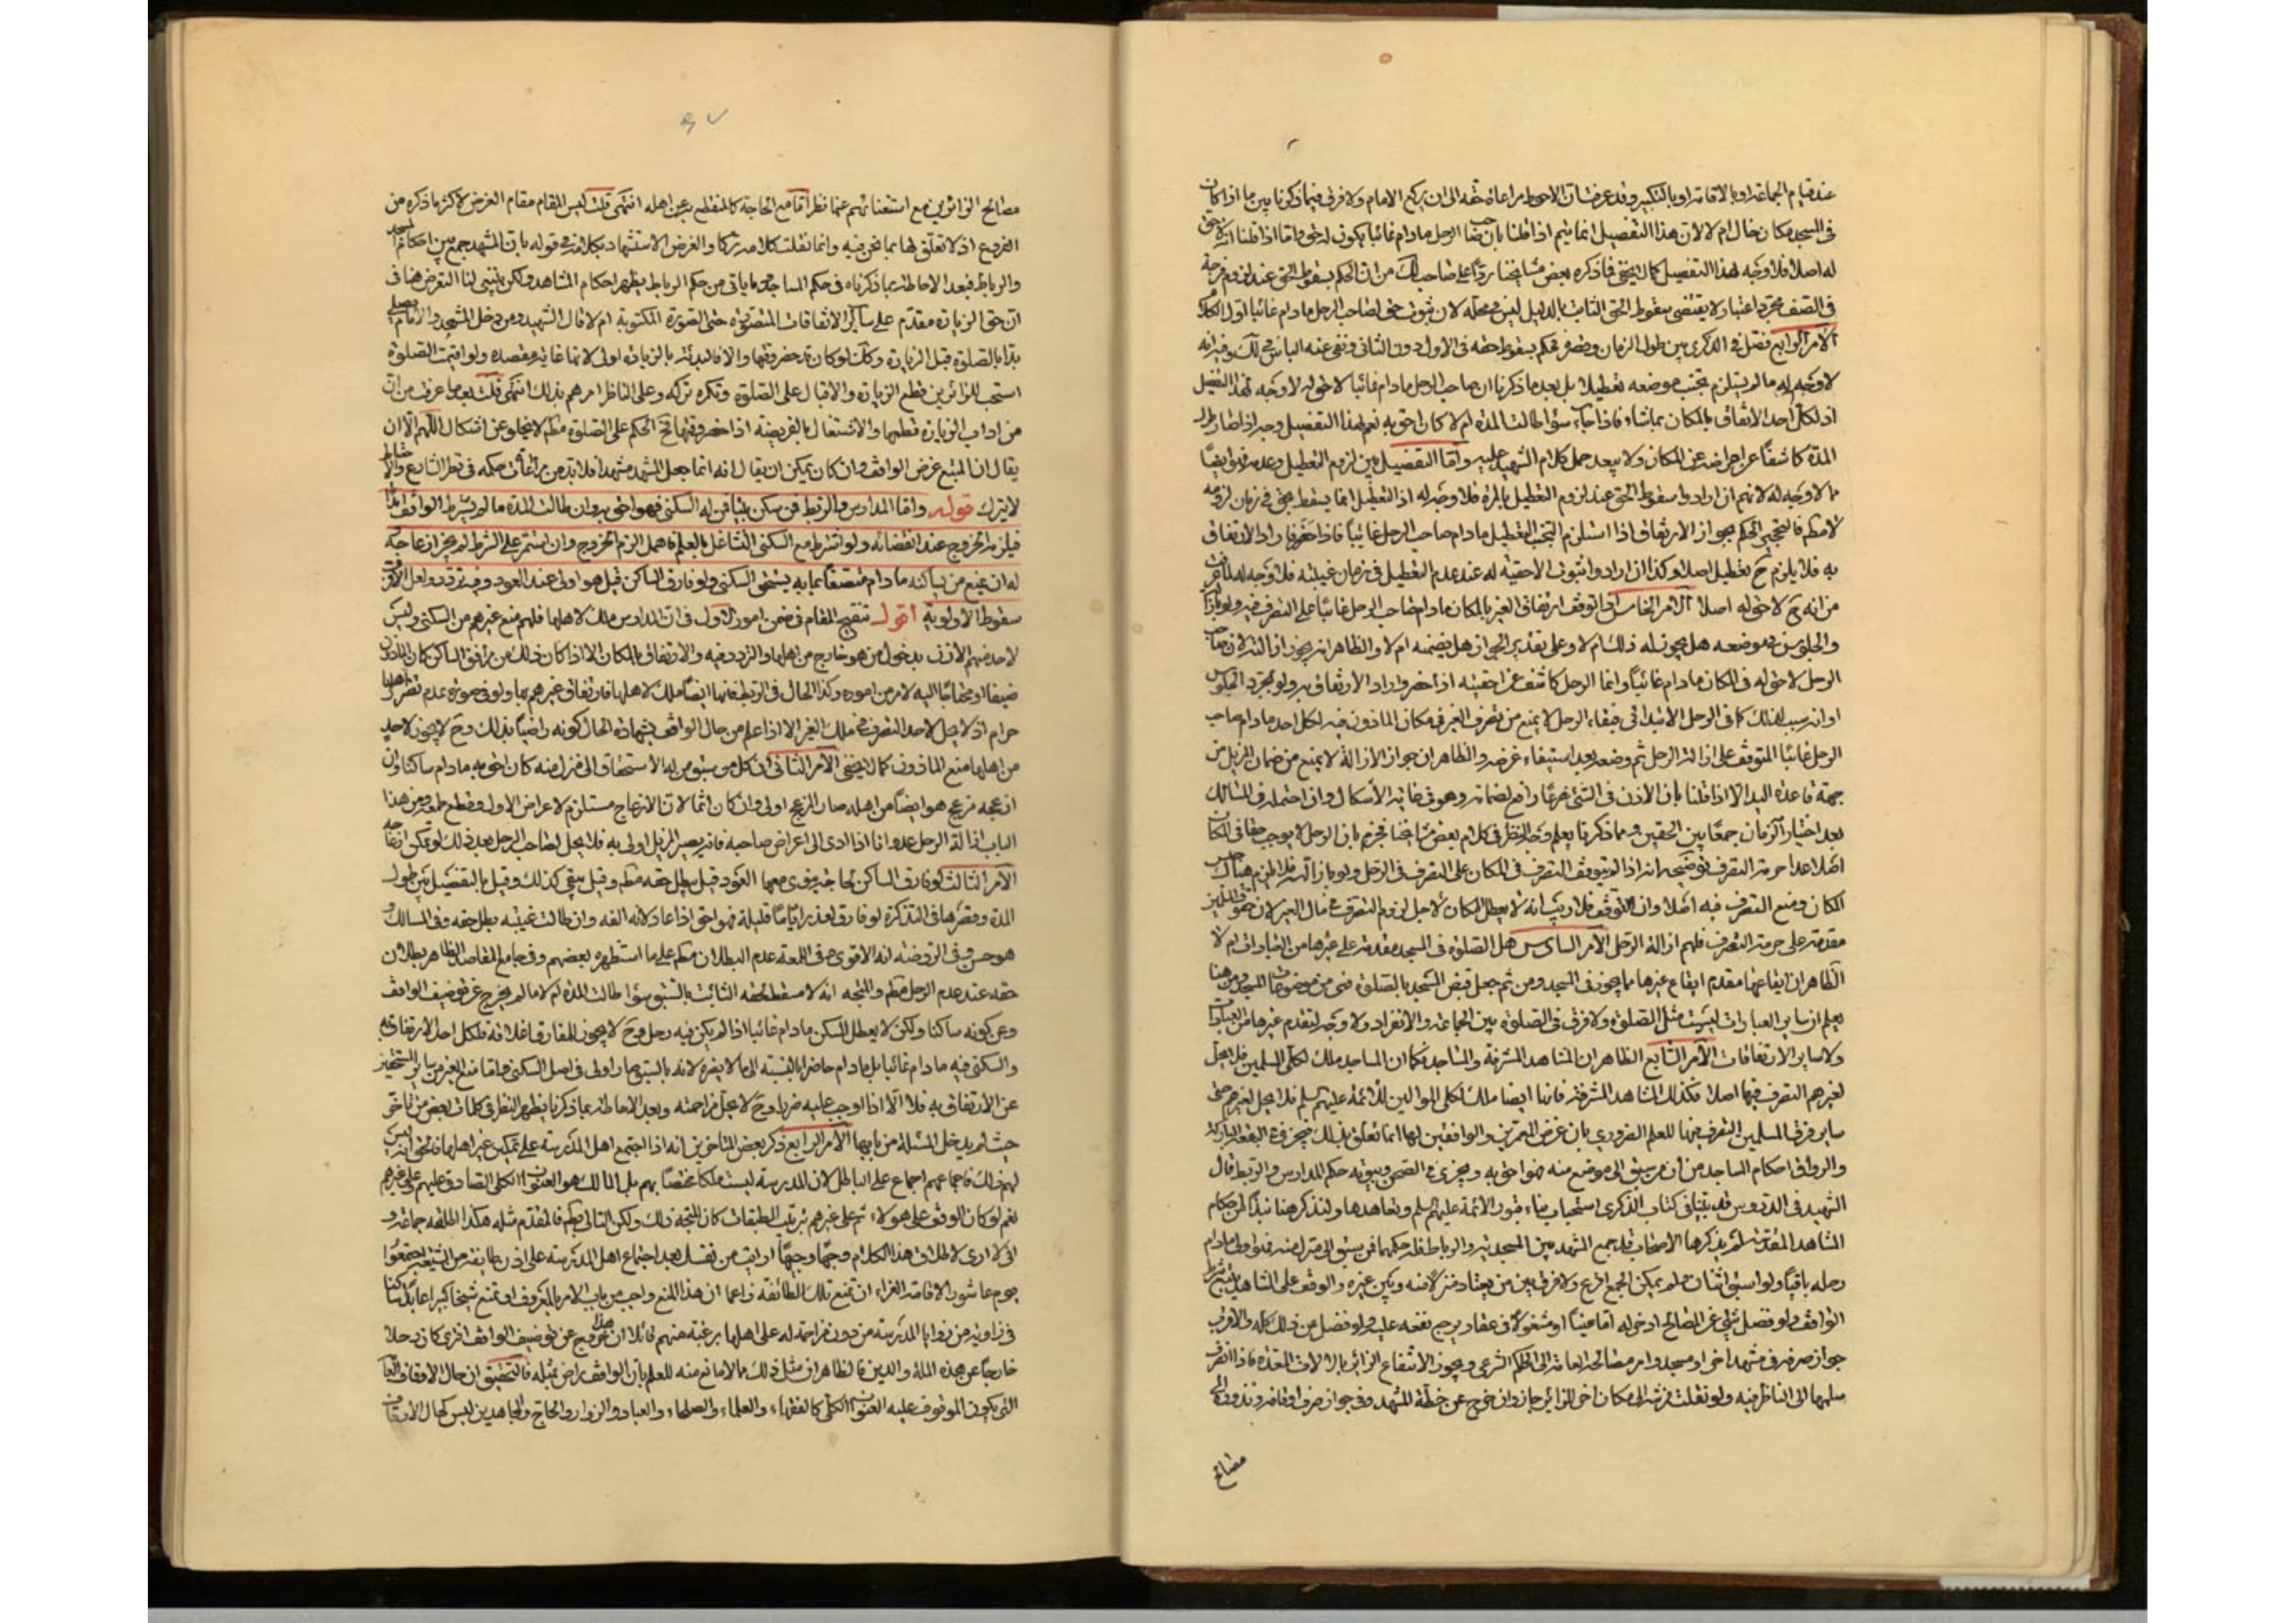 عند قيام الجماعة او بالاقامة او بالتكبير وقد عرفت ان الاحوط مراعاة حقه الى ان يركع الامام ولا فرق فيما ذكرنا بين ما اذا كان
في المسجد مكان خال ام لا لان هذا التفصيل انما يتم اذا قلنا بان صاحب الرحل مادام غائبا يكون له حق واما اذا قلنا انه لا حق
له اصلا فلا وجه لهذا التفصيل كما لا يخفى فما ذكره بعض مشايخنا ردا على صاحب لك من ان الحكم بسقوط الحق عند لزوم فرجة
في الصف مجرد اعتبار لا يقتضي سقوط الحق الثابت بالدليل ليس في محله لان ثبوت حق لصاحب الرحل مادام غائبا اول الكلام
الامر الرابع فصل في الذكرى بين طول الزمان وقصره فحكم بسقوط حقه في الاول دون الثاني ونفى عنه الباس في لك وفيه انه
لا وجه له ما لم يستلزم تجنب موضعه تعطيلا بل بعد ما ذكرنا ان صاحب الرحل مادام غائبا لا حق له لا وجه لهذا التفصيل
اذ لكل احد الارتفاق بالمكان بما شاء فاذا جاء سواء طالت المدة ام لا كان احق به نعم لهذا التفصيل وجه اذا صار طول
المدة كاشفا عن اعراضه عن المكان ولا يبعد حمل كلام الشهيد عليه واما التفصيل بين لزوم التعطيل وعدمه فهو ايضا
مما لا وجه له لانهم ان ارادوا سقوط الحق عند لزوم التعطيل بالمرة فلا وجه له اذ التعطيل انما يسقط الحق في زمان لزومه
لا مطلقا فالمتجه الحكم بجواز الارتفاق اذا استلزم التجنب التعطيل مادام صاحب الرحل غائبا فاذا حضر واراد الارتفاق
به فلا يلزم ح تعطيل اصلا وكذا ان ارادوا ثبوت الاحقية له عند عدم التعطيل في زمان غيبته فلا وجه له لما عرفت
من انه ح لا حق له اصلا الامر الخامس اذا توقف ارتفاق الغير بالمكان مادام صاحب الرحل غائبا على التصرف فيه ولو بازالته
والجلوس في موضعه هل يجوز له ذلك ام لا وعلى تقدير الجواز هل يضمنه ام لا والظاهر انه يجوز ازالته لان صاحب
الرحل لا حق له في المكان مادام غائبا وانما الرحل كاشف عن احقيته اذا حضر واراد الارتفاق به ولو بمجرد الجلوس
او انه سبب لذلك كما في الرحل الابتدائي فبقاء الرحل لا يمنع من تصرف الغير في مكان الماذون فيه لكل احد مادام صاحب
الرحل غائبا المتوقف على ازالة الرحل ثم وضعه بعد استيفاء غرضه والظاهر ان جواز الازالة لا يمنع من ضمان المزيل من
جهة قاعدة اليد الا اذا قلنا بان الاذن في الشئ شرعا رافع لضمانه وهو في غاية الاشكال وان احتمله في المسالك
بعد اختيار الضمان جمعا بين الحقين ومما ذكرنا يعلم وجه النظر في كلام بعض مشايخنا فجزم بان الرحل لا يوجب حقا في المكان
اصلا عدا حرمة التصرف توضيحه انه اذا لم يتوقف التصرف في المكان على التصرف في الرحل ولو بازالته فلا يلزم هناك حبس
المكان ومنع التصرف فيه اصلا وان توقف فلا ريب انه لا يعطل المكان لاجل لزوم التصرف في مال الغير لان حقوق المسلمين
مقدمة على حرمة التصرف فلهم ازالة الرحل الامر السادس هل الصلوة في المسجد مقدمة على غيرها من العبادات ام لا
الظاهر ان ايقاعها مقدم ايقاع غيرها مما يجوز في المسجد ومن ثم جعل قبض المسجد بالصلوة فهي من موضوعات المسجد ومن هنا
يعلم ان سائر العبادات ليست مثل الصلوة ولا فرق في الصلوة بين الجماعة والانفراد ولا وجه لتقدم غيرها من العبادات
ولا سائر الارتفاقات الامر السابع الظاهر ان المشاهد المشرفة والمساجد فكما ان المساجد ملك لكل المسلمين فلا يحل
لغيرهم التصرف فيها اصلا فكذلك المشاهد المشرفة فانها ايضا ملك لكل الموالين للائمة عليهم السلم فلا يحل لغيرهم حتى
سائر فرق المسلمين التصرف فيها للعلم الضروري بان غرض المعمرين والواقفين لها انما تعلق بذلك فيجري في البقعة المباركة
والرواق احكام المساجد من ان من سبق الى موضع منه فهو احق به ويجري في الصحن وبيوته حكم المدارس والربط قال
الشهيد في الدروس قد بينا في كتاب الذكرى استحباب بناء قبور الائمة عليهم السلم وتعاهدها ولنذكر هنا نبذا من احكام
المشاهد المقدسة لم يذكرها الاصحاب قد جمع المشهد بين المسجدية والرباط فله حكمهما فمن سبق الى منزل منه فهو اولى مادام
رحله باقيا ولو استبق اثنان ولم يمكن الجمع اقرع ولا فرق بين من يعتاد منزلا منه وبين غيره والوقف على المشاهد يتبع شرط
الواقف ولو فضل شئ عن المصالح ادخر له اما عينا او مشغولا في عقار يرجع نفعه عليه ولو فضل من ذلك كله فالاقرب
جواز صرفه في مشهد اخر او مسجد وامر مصالحه العامة الى الحاكم الشرعي ويجوز الانتفاع الزائر بالالات المعدة فاذا انصرف
سلمها الى الناظر فيه ولو نقلت فرشه الى مكان اخر للزائر جاز وان خرج عن خطة المشهد وفي جواز صرف اوقافه ونذوره الى
مصالح
مصالح الزائرين مع استغنائهم عنها نظر اما مع الحاجة كالمنقطع به عن اهله انتهى قلت ليس المقام مقام الغرض لاكثر ما ذكره من
الفروع اذ لا تعلق لها بما نحن فيه وانما نقلت كلامه تبركا والغرض الاستشهاد بكلامه في قوله بان المشهد جمع بين احكام المسجد
والرباط فبعد الاحاطة بما ذكرناه في حكم المساجد وما ياتي من حكم الرباط يظهر احكام المشاهد ولكن ينبغي لنا التعرض هنا في
ان حق الزيارة مقدم على سائر الارتفاقات المتصورة حتى الصلوة المكتوبة ام لا قال الشهيد ومن دخل المشهد والامام يصلي
بدا بالصلوة قبل الزيارة وكذلك لو كان قد حضر وقتها والا فالبداة بالزيارة اولى لانها غاية مقصده ولو اقيمت الصلوة
استحب للزائرين قطع الزيارة والاقبال على الصلوة ويكره تركه وعلى الناظر امرهم بذلك انتهى قلت بعد ما عرفت من ان
من اداب الزيارة قطعها والاشتغال بالفريضة اذا حضر وقتها ففي الحكم على الصلوة مطلقا لا يخلو عن اشكال اللهم الا ان
يقال ان المتبع غرض الواقف وان كان يمكن ان يقال انه انما جعل المشهد مشهدا فلا بد من مراعاة حكمه في نظر الشارع والاحتياط
لا يترك قوله واما المدارس والربط فمن سكن بيتا ممن له السكنى فهو احق به وان طالت المدة ما لم يشترط الواقف امدا
فيلزمه الخروج عند انقضائه ولو اشترط مع السكنى التشاغل بالعلم فاهمل الزم الخروج وان استمر على الشرط لم يجز ازعاجه و
له ان يمنع من يساكنه مادام متصفا بما به يستحق السكنى ولو فارق الساكن قيل هو اولى عند العود وفيه تردد ولعل الاقرب
سقوط الاولوية اقول تنقيح المقام في ضمن امور الاول في ان المدارس ملك لاهلها فلهم منع غيرهم من السكنى وليس
لاحد منهم الاذن بدخول من هو خارج من اهلها والتردد فيه والارتفاق بالمكان الا اذا كان ذلك من مرافق الساكن كان الماذون
ضيفا او محتاجا اليه لامر من اموره وكذا الحال في الربط فانها ايضا ملك لاهلها فارتفاق غيرهم بها ولو في صورة عدم تضرر اهلها
حرام اذ لا يحل لاحد التصرف في ملك الغير الا اذا علم من حال الواقف بشهادة الحال كونه راضيا بذلك وح لا يجوز لاحد
من اهلها منع الماذون كما لا يخفى الامر الثاني ان كل من سبق ممن له الاستحقاق الى منزل منه كان احق به مادام ساكنا وان
ازعجه مزعج هو ايضا من اهله صار المزعج اولى وان كان اثما لان الازعاج مستلزم لاعراض الاول وقطع طمعه ومن هذا
الباب ازالة الرحل عدوانا اذا ادى الى اعراض صاحبه فانه يصير المزيل اولى به فلا يحل لصاحب الرحل بعد ذلك لو تمكن ازعاجه
الامر الثالث لو فارق الساكن لحاجة ينوي معها العود قيل يبطل حقه مطلقا وقيل يبقى كذلك وقيل بالتفصيل بين طول
المدة وقصرها في التذكرة لو فارق لعذر اياما قليلة فهو احق اذا عاد لانه الفه وان طالت غيبته بطل حقه وفي المسالك و
هو حسن وفي الروضة انه الاقوى وفي اللمعة عدم البطلان مطلقا على ما استظهره بعضهم وفي جامع المقاصد الظاهر بطلان
حقه عند عدم الرحل مطلقا والمتجه انه لا مسقط لحقه الثابت بالسبق سواء طالت المدة ام لا ما لم يخرج عن توصيف الواقف
وعن كونه ساكنا ولكن لا يعطل المسكن مادام غائبا اذا لم يكن فيه رحل وح لا يجوز للمفارق اغلاقه فلكل احد الارتفاق به
والسكنى فيه مادام غائبا بل مادام حاضرا بالنسبة الى ما لا يضره لانه بالسبق صار اولى في اصل السكنى واما منع الغير من سائر المستحقين
عن الارتفاق به فلا الا اذا اوجب عليه ضررا وح لا يحل مزاحمته وبعد الاحاطة بما ذكرنا يظهر النظر في كلمات بعض من تاخر
حيث لم يدخل المسئلة من بابها الامر الرابع ذكر بعض المتاخرين انه اذا اجتمع اهل المدرسة على تمكين غير اهلها فالحق انه ليس
لهم ذلك فاجماعهم اجماع على الباطل لان المدرسة ليست ملكا مختصا بهم بل المالك هو العنوان الكلي الصادق عليهم وعلى غيرهم
نعم لو كان الوقف على هؤلاء ثم على غيرهم بترتيب الطبقات كان المتجه ذلك ولكن التالي كالمقدم مثله هكذا اطلقه جماعة و
اني لا ارى لاطلاق هذا الكلام وجها وجيها ارايت من نفسك بعد اجتماع اهل المدرسة على اذن طائفة من الشيعة يجتمعوا
يوم عاشورا لاقامة العزاء ان تمنع تلك الطائفة زاعما ان هذا المنع واجب من باب الامر بالمعروف او تمنع شيخا كبيرا عابدا ساكنا
في زاوية من زوايا المدرسة من دون مزاحمة له على اهلها برغبة منهم قائلا ان هذا خروج عن توصيف الواقف افترى كان دخلا
خارجا عن هذه الملة والدين فالظاهر ان مثل ذلك مما لا مانع منه للعلم بان الواقف راض بمثله فالتحقيق ان حال الاوقاف العامة
التي يكون الموقوف عليه العنوان الكلي كالفقهاء والعلماء والصلحاء والعباد والزوار والحاج والمجاهدين ليس كحال الاوقاف